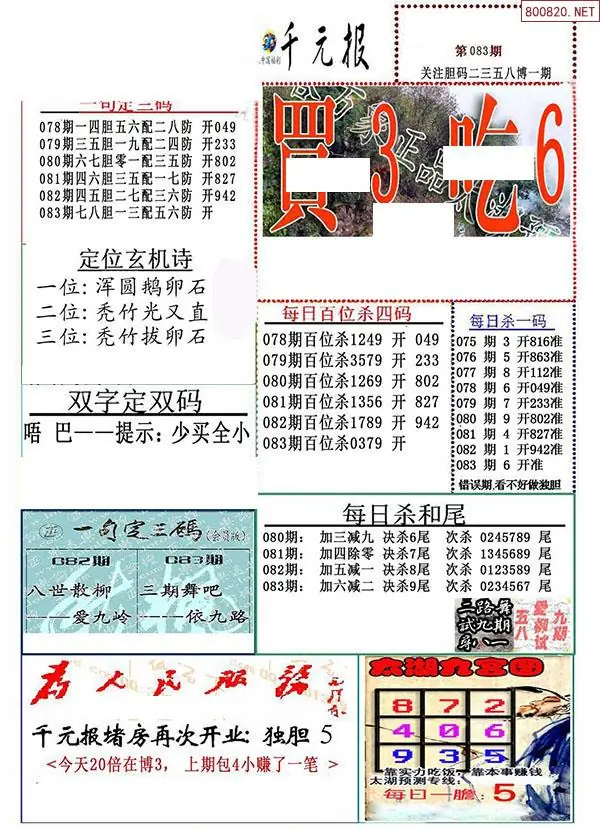 800820.NET
千元报
第083期
关注胆码二三五八博一期
買3吃6
一句定三码
078期一四胆五六配二八防 开049
079期三五胆一九配二四防 开233
080期六七胆零一配三五防 开802
081期四六胆三五配一七防 开827
082期四五胆二七配三六防 开942
083期七八胆一三配五六防 开
定位玄机诗
一位: 浑圆鹅卵石
二位: 秃竹光又直
三位: 秃竹拔卵石
双字定双码
唔 巴——提示: 少买全小
每日百位杀四码
078期百位杀1249 开 049
079期百位杀3579 开 233
080期百位杀1269 开 802
081期百位杀1356 开 827
082期百位杀1789 开 942
083期百位杀0379 开
每日杀一码
075 期 3 开816准
076 期 5 开863准
077 期 8 开112准
078 期 6 开049准
079 期 7 开233准
080 期 9 开802准
081 期 4 开827准
082 期 1 开942准
083 期 6 开准
错误期,看不好做独胆
每日杀和尾
080期: 加三减九 决杀6尾 次杀 0245789 尾
081期: 加四除零 决杀7尾 次杀 1345689 尾
082期: 加五减一 决杀8尾 次杀 0123589 尾
083期: 加六减二 决杀9尾 次杀 0234567 尾
一句定三码(会员版)
082期 083期
八世散柳 三期舞吧
——爱九岭 ——依九路
二路舞
试九期
寻八一
五八
爱柳试
九期
为人民服务
千元报堵房再次开业: 独胆 5
<今天20倍在博3, 上期包4小赚了一笔 >
太湖九宫图
8 7 2
4 0 6
9 3 5
靠实力吃饭,靠本事赚钱
太湖预测专线:
每日一胆: 5